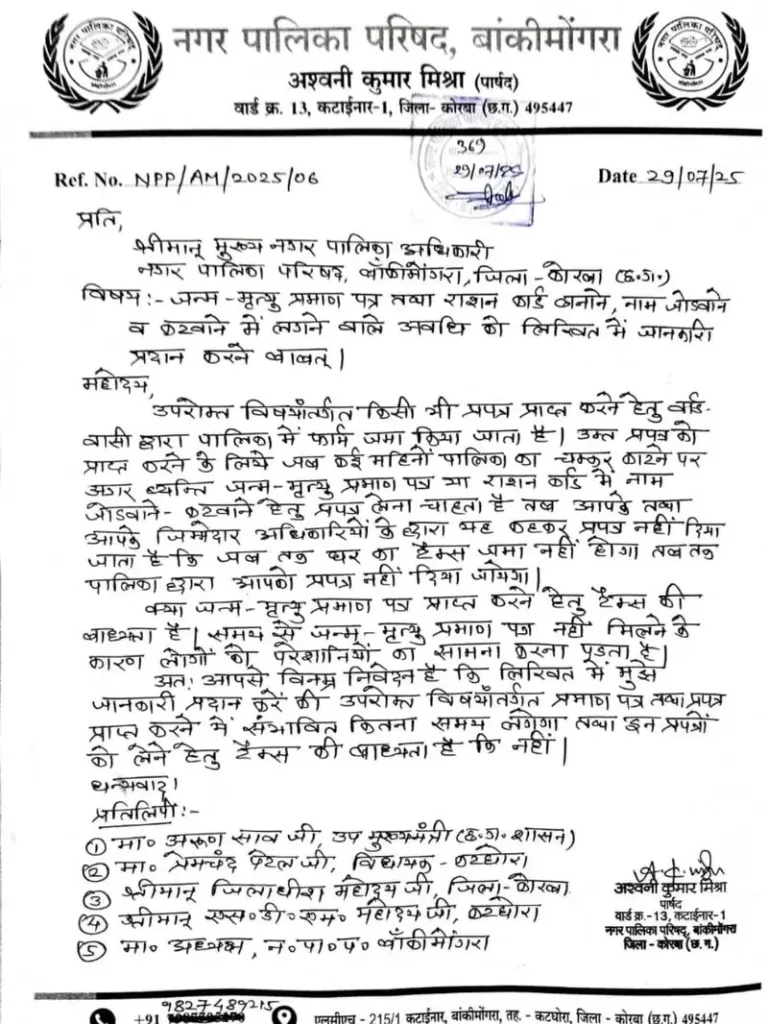 नगर पालिका परिषद, बांकीमोंगरा
अश्वनी कुमार मिश्रा (पार्षद)
वार्ड क्र. 13, कटाईनार-1, जिला- कोरबा (छ.ग.) 495447
369
29/07/25
Ref. No. NPP/AM/2025/06 Date 29/07/25
प्रति,
श्रीमान् मुख्य नगर पालिका अधिकारी
नगर पालिका परिषद, बाँकीमोंगरा, जिला - कोरबा (छ.ग.)
विषय :- जन्म -मृत्यु प्रमाण पत्र तथा राशन कार्ड बनाने, नाम जोडवाने
व कटवाने में लगने वाले अवधि को लिखित में जानकारी
प्रदान करने बाबत् |
महोदय,
उपरोक्त विषयांतर्गत किसी भी प्रपत्र प्राप्त करने हेतु वार्ड-
वासी द्वारा पालिका में फार्म जमा किया जाता है | उक्त प्रपत्र को
प्राप्त करने के लिये जब कई महिनों पालिका का चक्कर काटने पर
अगर व्यक्ति जन्म-मृत्यु प्रमाण पत्र या राशन कार्ड में नाम
जोडवाने - कटवाने हेतु प्रपत्र लेना चाहता है तब आपके तथा
आपके जिम्मेदार अधिकारियों के द्वारा यह कहकर प्रपत्र नहीं दिया
जाता है कि जब तक घर का टैक्स जमा नहीं होगा तब तक
पालिका द्वारा आपको प्रपत्र नहीं दिया जायेगा |
क्या जन्म-मृत्यु प्रमाण पत्र प्राप्त करने हेतु टैक्स की
बाध्यता है | समय से जन्म-मृत्यु प्रमाण पत्र नहीं मिलने के
कारण लोगों को परेशानियों का सामना करना पड़ता है |
अतः आपसे विनम्र निवेदन है कि लिखित में मुझे
जानकारी प्रदान करें की उपरोक्त विषयांतर्गत प्रमाण पत्र तथा प्रपत्र
प्राप्त करने में संभावित कितना समय लगेगा तथा इन प्रपत्रों
को लेने हेतु टैक्स की बाध्यता है कि नहीं |
धन्यवाद |
प्रतिलिपी :-
① मा० अरुण साव जी, उप मुख्यमंत्री (छ.ग. शासन)
② मा० प्रेमचंद पटेल जी, विधायक - कटघोरा
③ श्रीमान् जिलाधीश महोदय जी, जिला- कोरबा
④ श्रीमान् एस० डी० एम० महोदय जी, कटघोरा
⑤ मा० अध्यक्ष, न० पा० प० बाँकीमोंगरा
अश्वनी कुमार मिश्रा
पार्षद
वार्ड क्र.-13, कटाईनार-1
नगर पालिका परिषद, बांकीमोंगरा
जिला - कोरबा (छ.ग.)
9827489215
+91
एलमीएच - 215/1 कटाईनार, बांकीमोंगरा, तह. - कटघोरा, जिला - कोरबा (छ.ग.) 495447